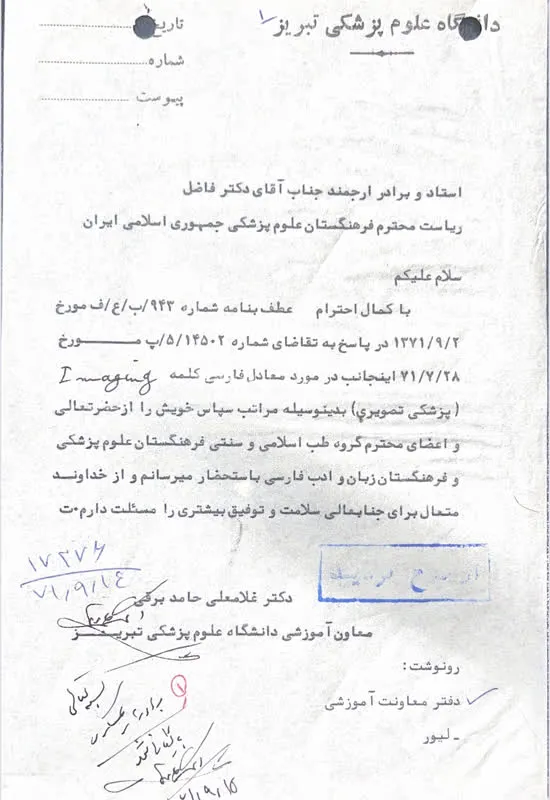 دانشگاه علوم پزشکی تبریز
۱
تاریخ
شماره
پیوست
استاد و برادر ارجمند جناب آقای دکتر فاضل
ریاست محترم فرهنگستان علوم پزشکی جمهوری اسلامی ایران
سلام علیکم
با کمال احترام عطف بنامه شماره ۹۴۳/ب/ع/ف مورخ
۱۳۷۱/۹/۲ در پاسخ به تقاضای شماره ۵/۱۴۵۰۲/پ مــورخ
۷۱/۷/۲۸ اینجانب در مورد معادل فارسی کلمه Imaging
(پزشکی تصویری) بدینوسیله مراتب سپاس خویش را ازحضرتعالی
و اعضای محترم گروه طب اسلامی و سنتی فرهنگستان علوم پزشکی
و فرهنگستان زبان و ادب فارسی باستحضار میرسانم و از خداونـد
متعال برای جنابعالی سلامت و توفیق بیشتری را مسئلت دارم.ت
۱۷۲۷۶
۷۱/۹/۱۴
دکتر غلامعلی حامد برقی
معاون آموزشی دانشگاه علوم پزشکی تبریـز
رونوشت:
دفتر معاونت آموزشی
ـ لیور
۱
۷۱/۹/۱۵